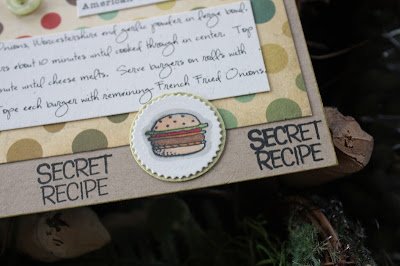 American
Onions, Worcestershire and garlic powder in large bowl.
rs about 10 minutes until cooked through in center. Tops
nute until cheese melts. Serve burgers on rolls with
Tope each burger with remaining French Fried Onions.
SECRET
RECIPE
SECRET
RECIPE